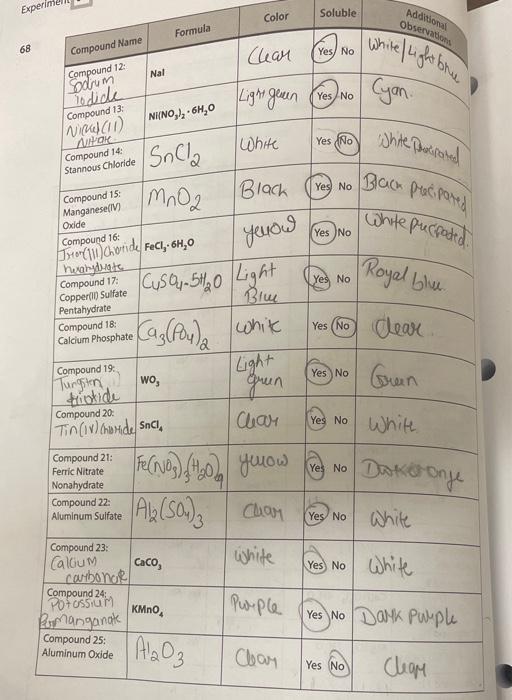 Experiment
68
Compound Name Formula Color Soluble Additional Observations
Compound 12: Sodium Iodide NaI Clear Yes No White/Light blue
Compound 13: Nickel(II) Nitrate Ni(NO3)2 · 6H2O Light green Yes No Cyan.
Compound 14: Stannous Chloride SnCl2 White Yes No White
Compound 15: Manganese(IV) Oxide MnO2 Black Yes No Black
Compound 16: Iron(III) Chloride hexahydrate FeCl3 · 6H2O yellow Yes No White
Compound 17: Copper(II) Sulfate Pentahydrate CuSO4-5H2O Light Blue Yes No Royal blue.
Compound 18: Calcium Phosphate Ca3(PO4)2 white Yes No Clear.
Compound 19: Tungsten trioxide WO3 Light green Yes No Green
Compound 20: Tin(IV) Chloride SnCl4 Clear Yes No White
Compound 21: Ferric Nitrate Nonahydrate Fe(NO3)3(H2O)9 yellow Yes No Dark orange
Compound 22: Aluminum Sulfate Al2(SO4)3 Clear Yes No White
Compound 23: Calcium carbonate CaCO3 White Yes No White
Compound 24: Potassium Permanganate KMnO4 Purple Yes No Dark Purple
Compound 25: Aluminum Oxide Al2O3 Clear Yes No Clear